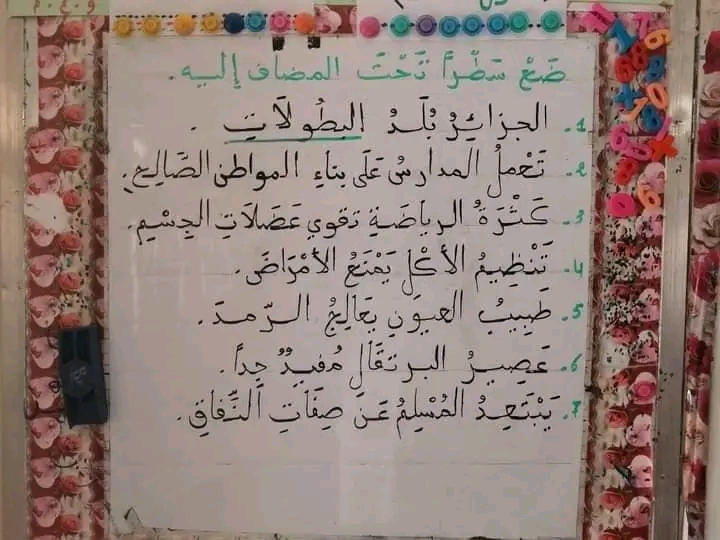 ضَعْ سَطْرًا تَحْتَ المضاف إليه.
1. الجزائِرُ بَلَدُ البُطُولَاتِ.
2. تَعْملُ المدارسُ عَلَى بناءِ المواطن الصَّالِح.
3. كَثْرَةُ الرياضَةِ تقوي عَضَلَاتِ الجِسْمِ.
4. تَنْظِيمُ الأكْلِ يَمْنَعُ الأَمْرَاضَ.
5. طَبِيبُ العيونِ يعَالِجُ الرّمدَ.
6. عَصِيرُ البرتقَالِ مُفِيدٌ جِداً.
7. يَبْتَعِدُ المُسْلِمُ عَنْ صِفَاتِ النِّفَاقِ.